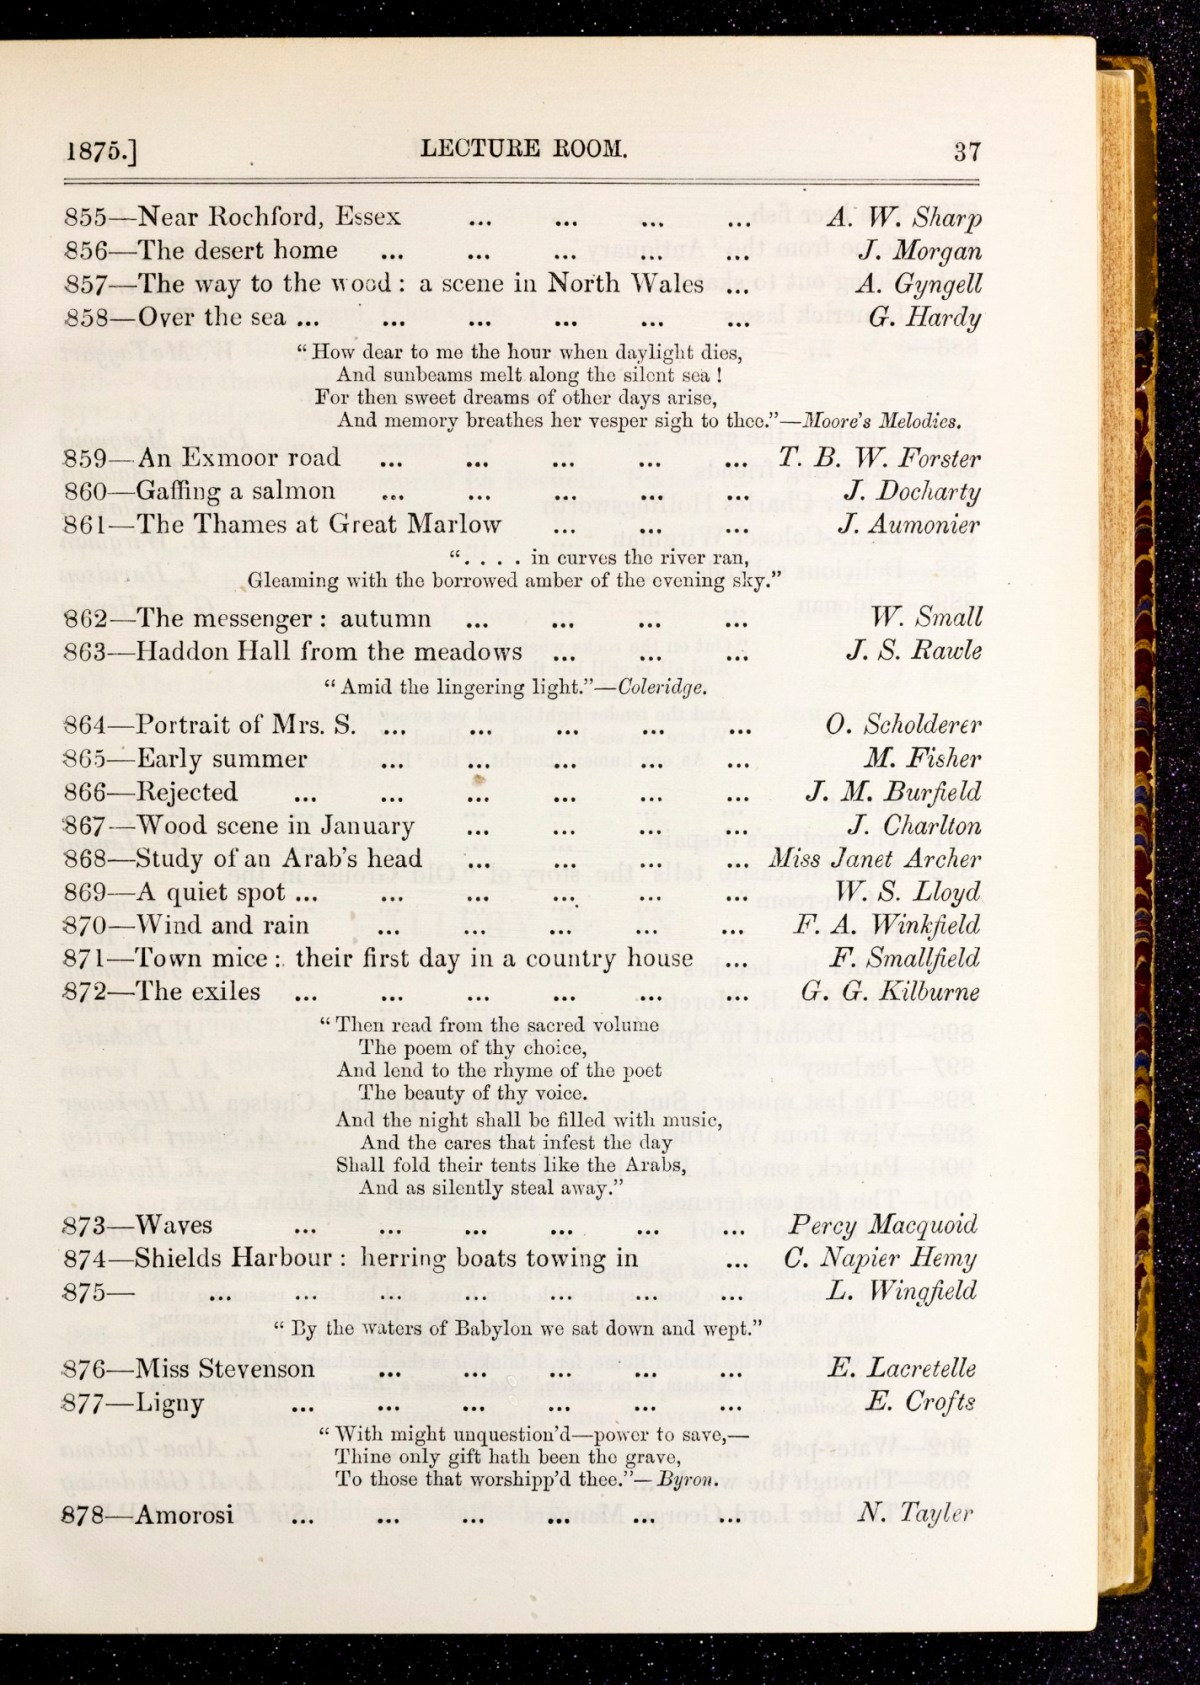 1875.] LECTURE ROOM. 37
855—Near Rochford, Essex ... ... ... ... A. W. Sharp
856—The desert home ... ... ... ... ... J. Morgan
857—The way to the wood : a scene in North Wales ... A. Gyngell
858—Over the sea ... ... ... ... ... ... G. Hardy
“ How dear to me the hour when daylight dies,
And sunbeams melt along the silent sea !
For then sweet dreams of other days arise,
And memory breathes her vesper sigh to thee.”—Moore’s Melodies.
859—An Exmoor road ... ... ... ... ... T. B. W. Forster
860—Gaffing a salmon ... ... ... ... ... J. Docharty
861—The Thames at Great Marlow ... ... ... J. Aumonier
“. . . . in curves the river ran,
Gleaming with the borrowed amber of the evening sky.”
862—The messenger : autumn ... ... ... ... W. Small
863—Haddon Hall from the meadows ... ... ... J. S. Rawle
“ Amid the lingering light.”—Coleridge.
864—Portrait of Mrs. S. ... ... ... ... ... O. Scholderer
865—Early summer ... ... ... ... ... M. Fisher
866—Rejected ... ... ... ... ... ... J. M. Burfield
867—Wood scene in January ... ... ... ... J. Charlton
868—Study of an Arab’s head ... ... ... ... Miss Janet Archer
869—A quiet spot ... ... ... ... ... ... W. S. Lloyd
870—Wind and rain ... ... ... ... ... F. A. Winkfield
871—Town mice : their first day in a country house ... F. Smallfield
872—The exiles ... ... ... ... ... ... G. G. Kilburne
“ Then read from the sacred volume
The poem of thy choice,
And lend to the rhyme of the poet
The beauty of thy voice.
And the night shall be filled with music,
And the cares that infest the day
Shall fold their tents like the Arabs,
And as silently steal away.”
873—Waves ... ... ... ... ... ... Percy Macquoid
874—Shields Harbour : herring boats towing in ... C. Napier Hemy
875— ... ... ... ... ... ... ... L. Wingfield
“ By the waters of Babylon we sat down and wept.”
876—Miss Stevenson ... ... ... ... ... E. Lacretelle
877—Ligny ... ... ... ... ... ... E. Crofts
“ With might unquestion’d—power to save,—
Thine only gift hath been the grave,
To those that worshipp’d thee.”—Byron.
878—Amorosi ... ... ... ... ... ... N. Tayler